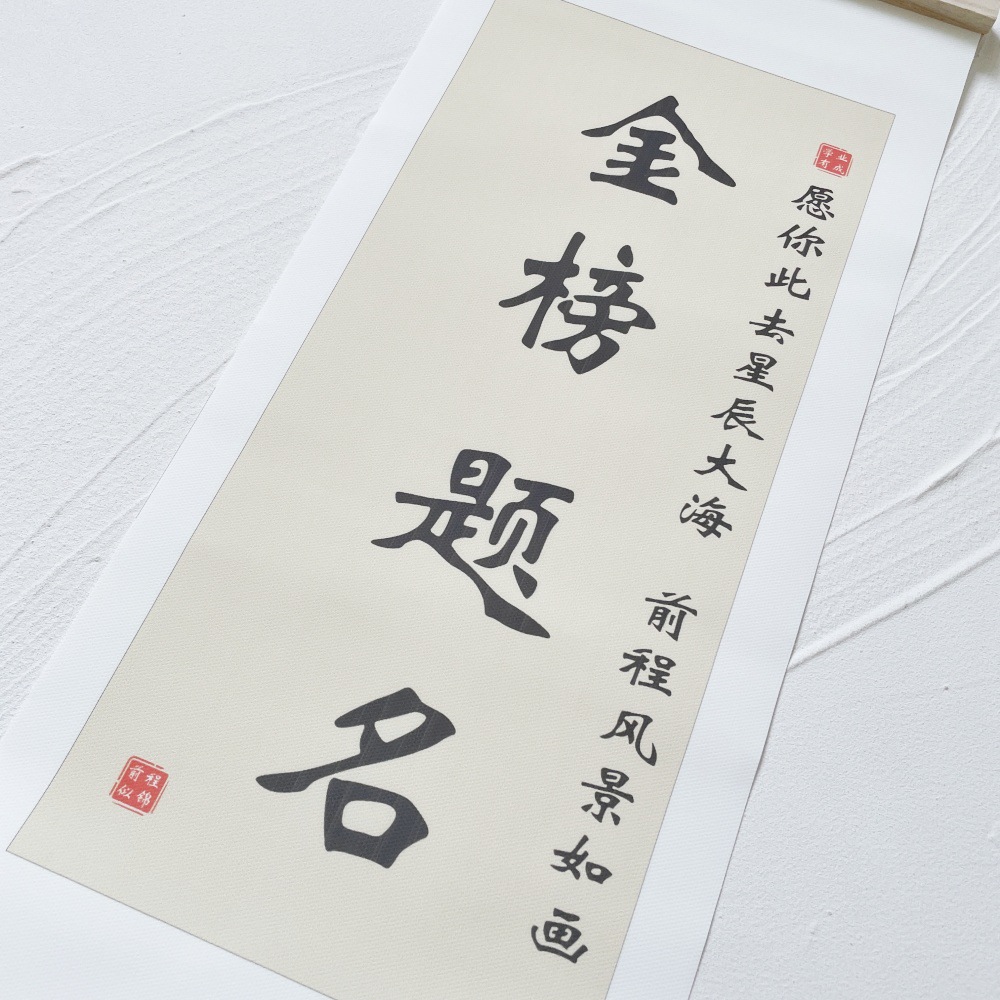 业成
学有
愿你此去星辰大海 前程风景如画
金榜题名
前程
似锦